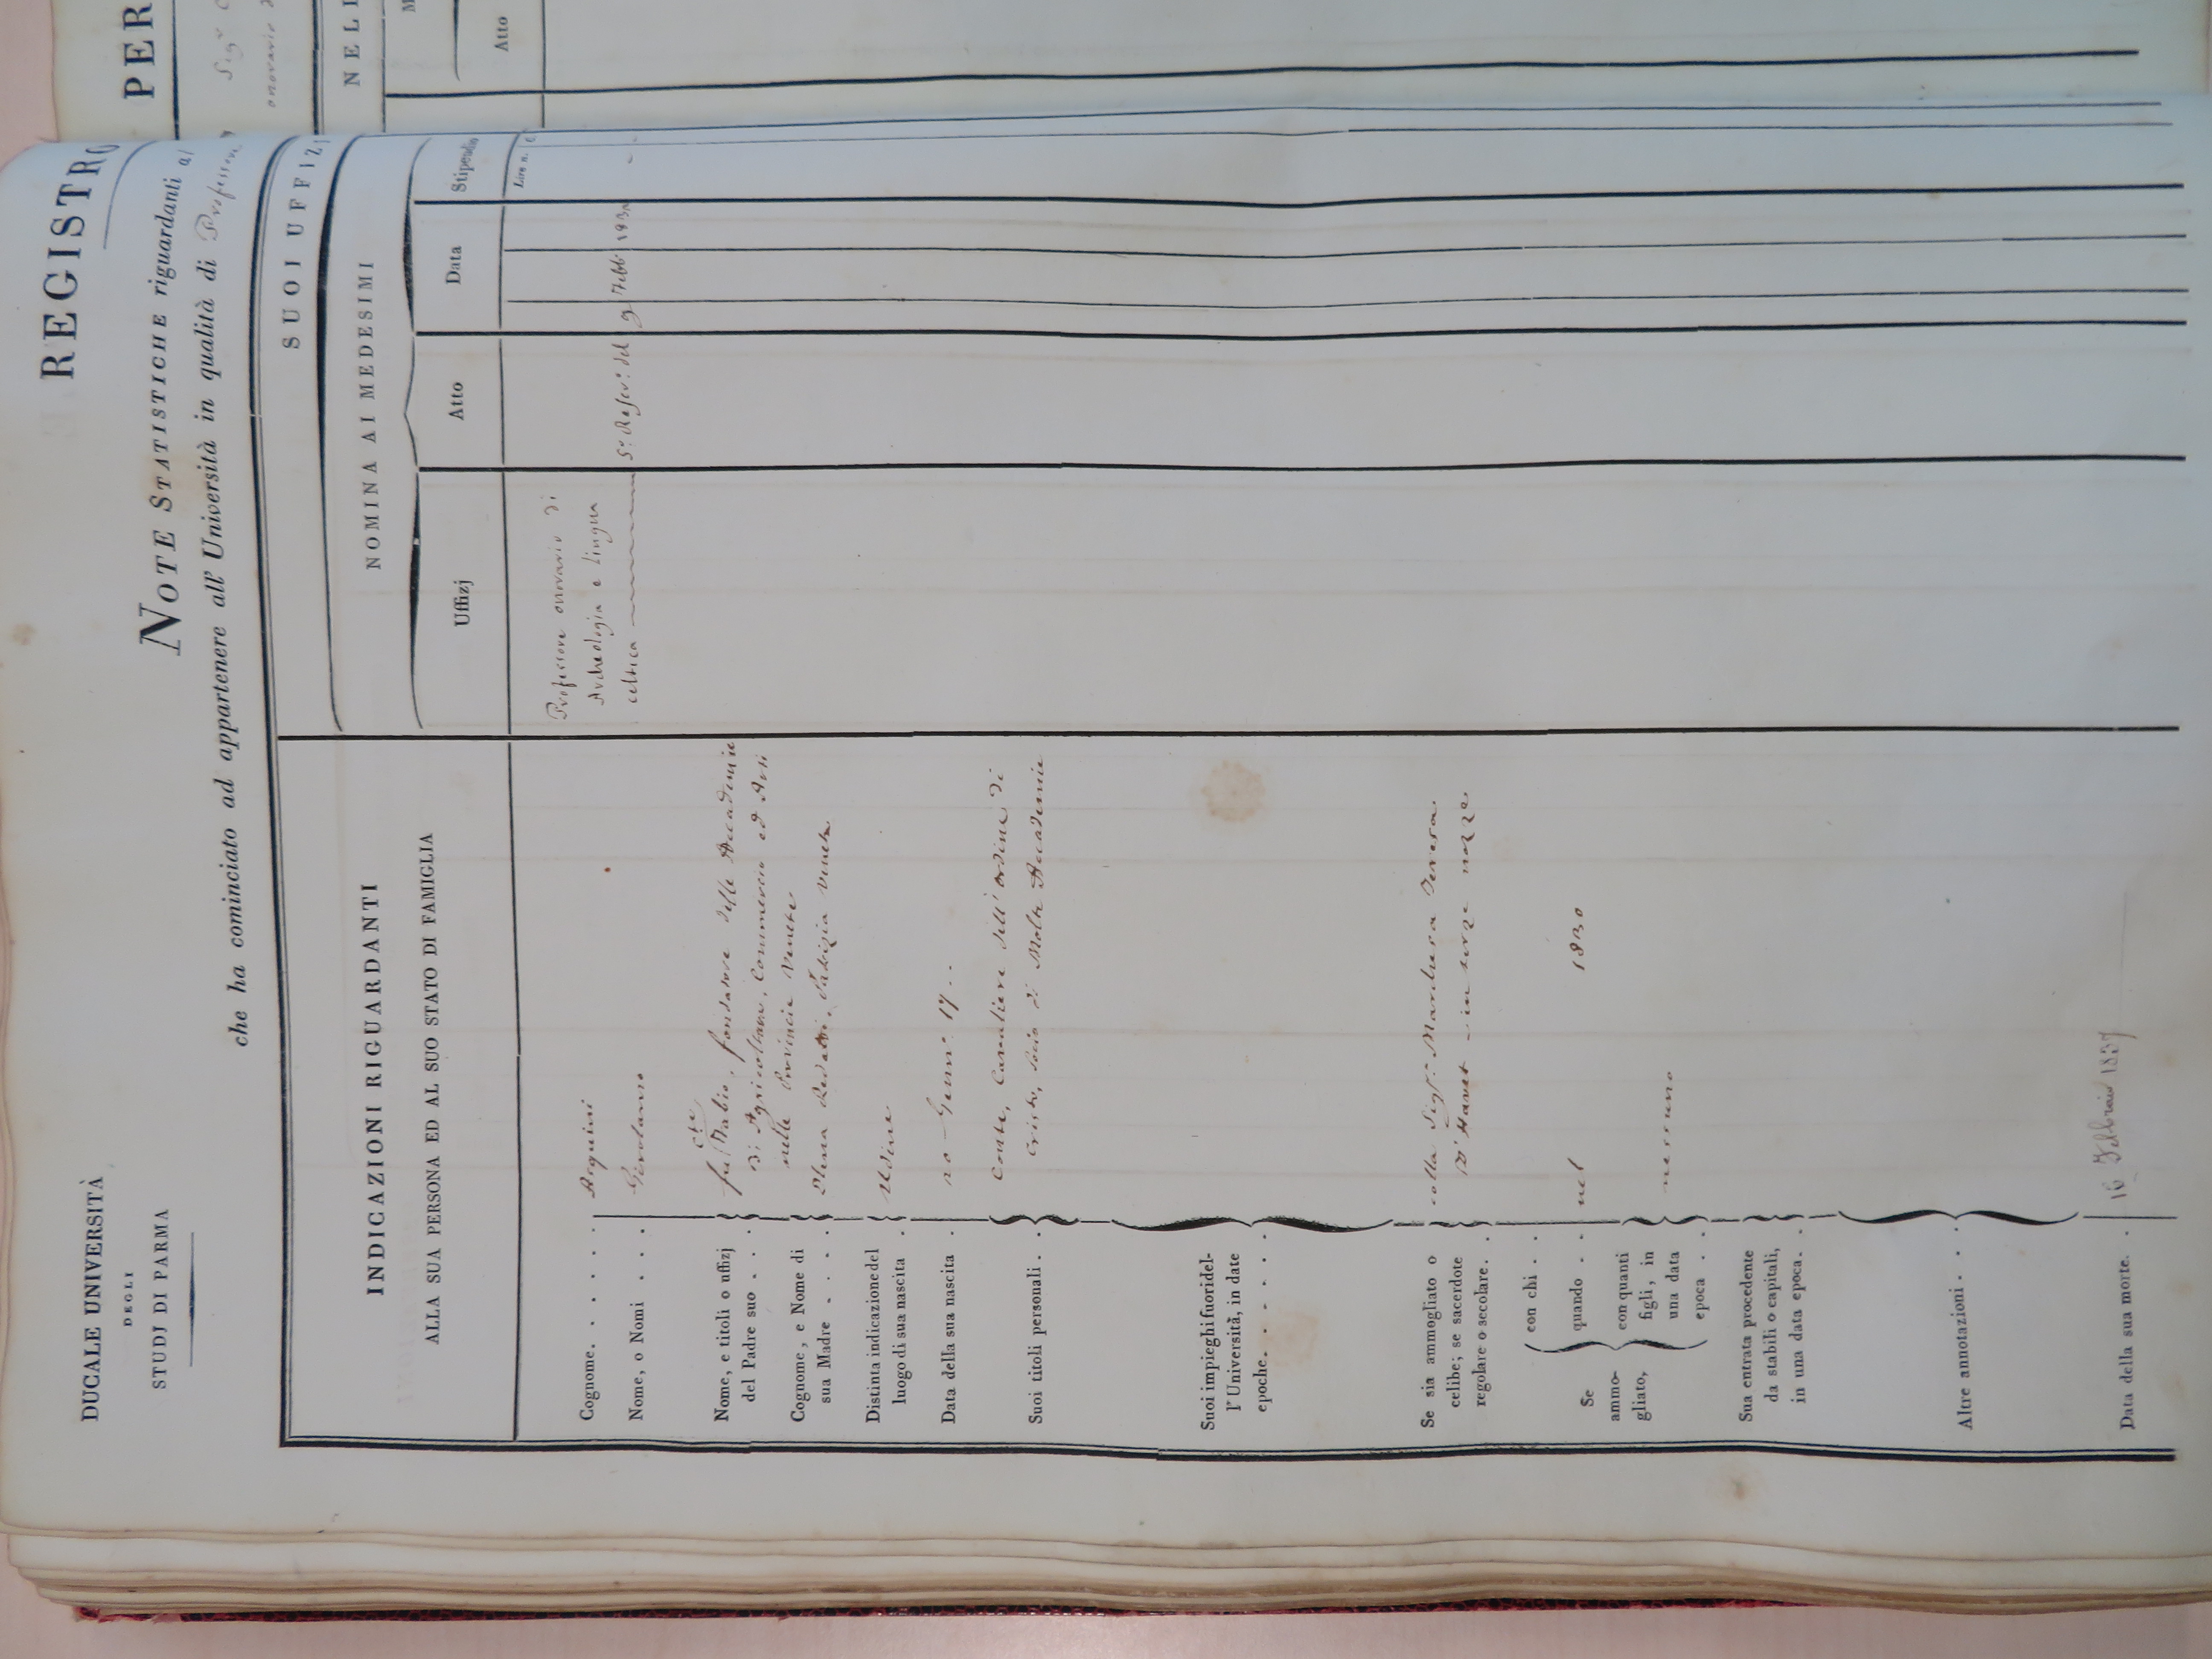 DUCALE UNIVERSITÀ
DEGLI
STUDJ DI PARMA
REGISTRO
NOTE STATISTICHE riguardanti al
che ha cominciato ad appartenere all' Università in qualità di Professore
INDICAZIONI RIGUARDANTI
ALLA SUA PERSONA ED AL SUO STATO DI FAMIGLIA
SUOI UFFIZJ
NOMINA AI MEDESIMI
Uffizj
Atto
Data
Stipendio
Lire n. C
Cognome. . . . . . Asquini
Nome, o Nomi . . . . Girolamo
Nome, e titoli o uffizj
del Padre suo . . . .
fu C.te Fabio, fondatore delle Accademie
di Agricoltura, Commercio ed Arti
nelle Provincie Venete
Cognome, e Nome di
sua Madre . . . . .
Elena Patrizia Veneta
Distinta indicazione del
luogo di sua nascita .
Udine
Data della sua nascita . Genn.° 17 . .
Suoi titoli personali . .
Conte, Cavaliere dell' ordine di
Cristo, Socio di Molte Accademie
Suoi impieghi fuori del-
l' Università, in date
epoche. . . . . . .
Se sia ammogliato o
celibe; se sacerdote
regolare o secolare. .
colla Sig.ra
D' Hanet - in terze nozze
Se
ammo-
gliato,
con chi . .
quando . . nel 1830
con quanti
figli, in
una data
epoca . .
nessuno
Sua entrata procedente
da stabili o capitali,
in una data epoca. .
Altre annotazioni. . . .
Data della sua morte. . 16 Febbraio 1837
Professore onorario di
Archeologia e lingua
celtica
S.° Rescr.° del 9 7bb. 183
PER
Sig.r
onorario
NELL
M
Atto